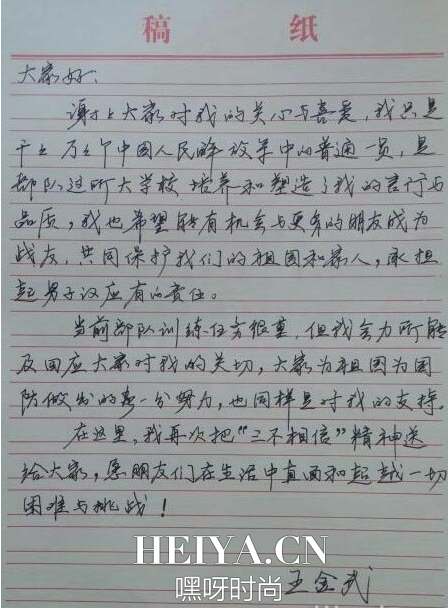 稿 纸
大家好：
谢谢大家对我的关心与喜爱，我只是
千千万万个中国人民解放军中的普通一员，是
部队这所大学校培养和塑造了我的言行与
品质，我也希望能有机会与更多的朋友成为
战友，共同保护我们的祖国和家人，承担
起男子汉应有的责任。
当前部队训练任务很重，但我会力所能
及回应大家对我的关切，大家为祖国为国
防做出的每一分努力，也同样是对我的支持
在这里，我再次把“三不相信”精神送
给大家，愿朋友们在生活中直面和超越一切
困难与挑战！
HEIYA.CN
嘿呀时尚
王金武